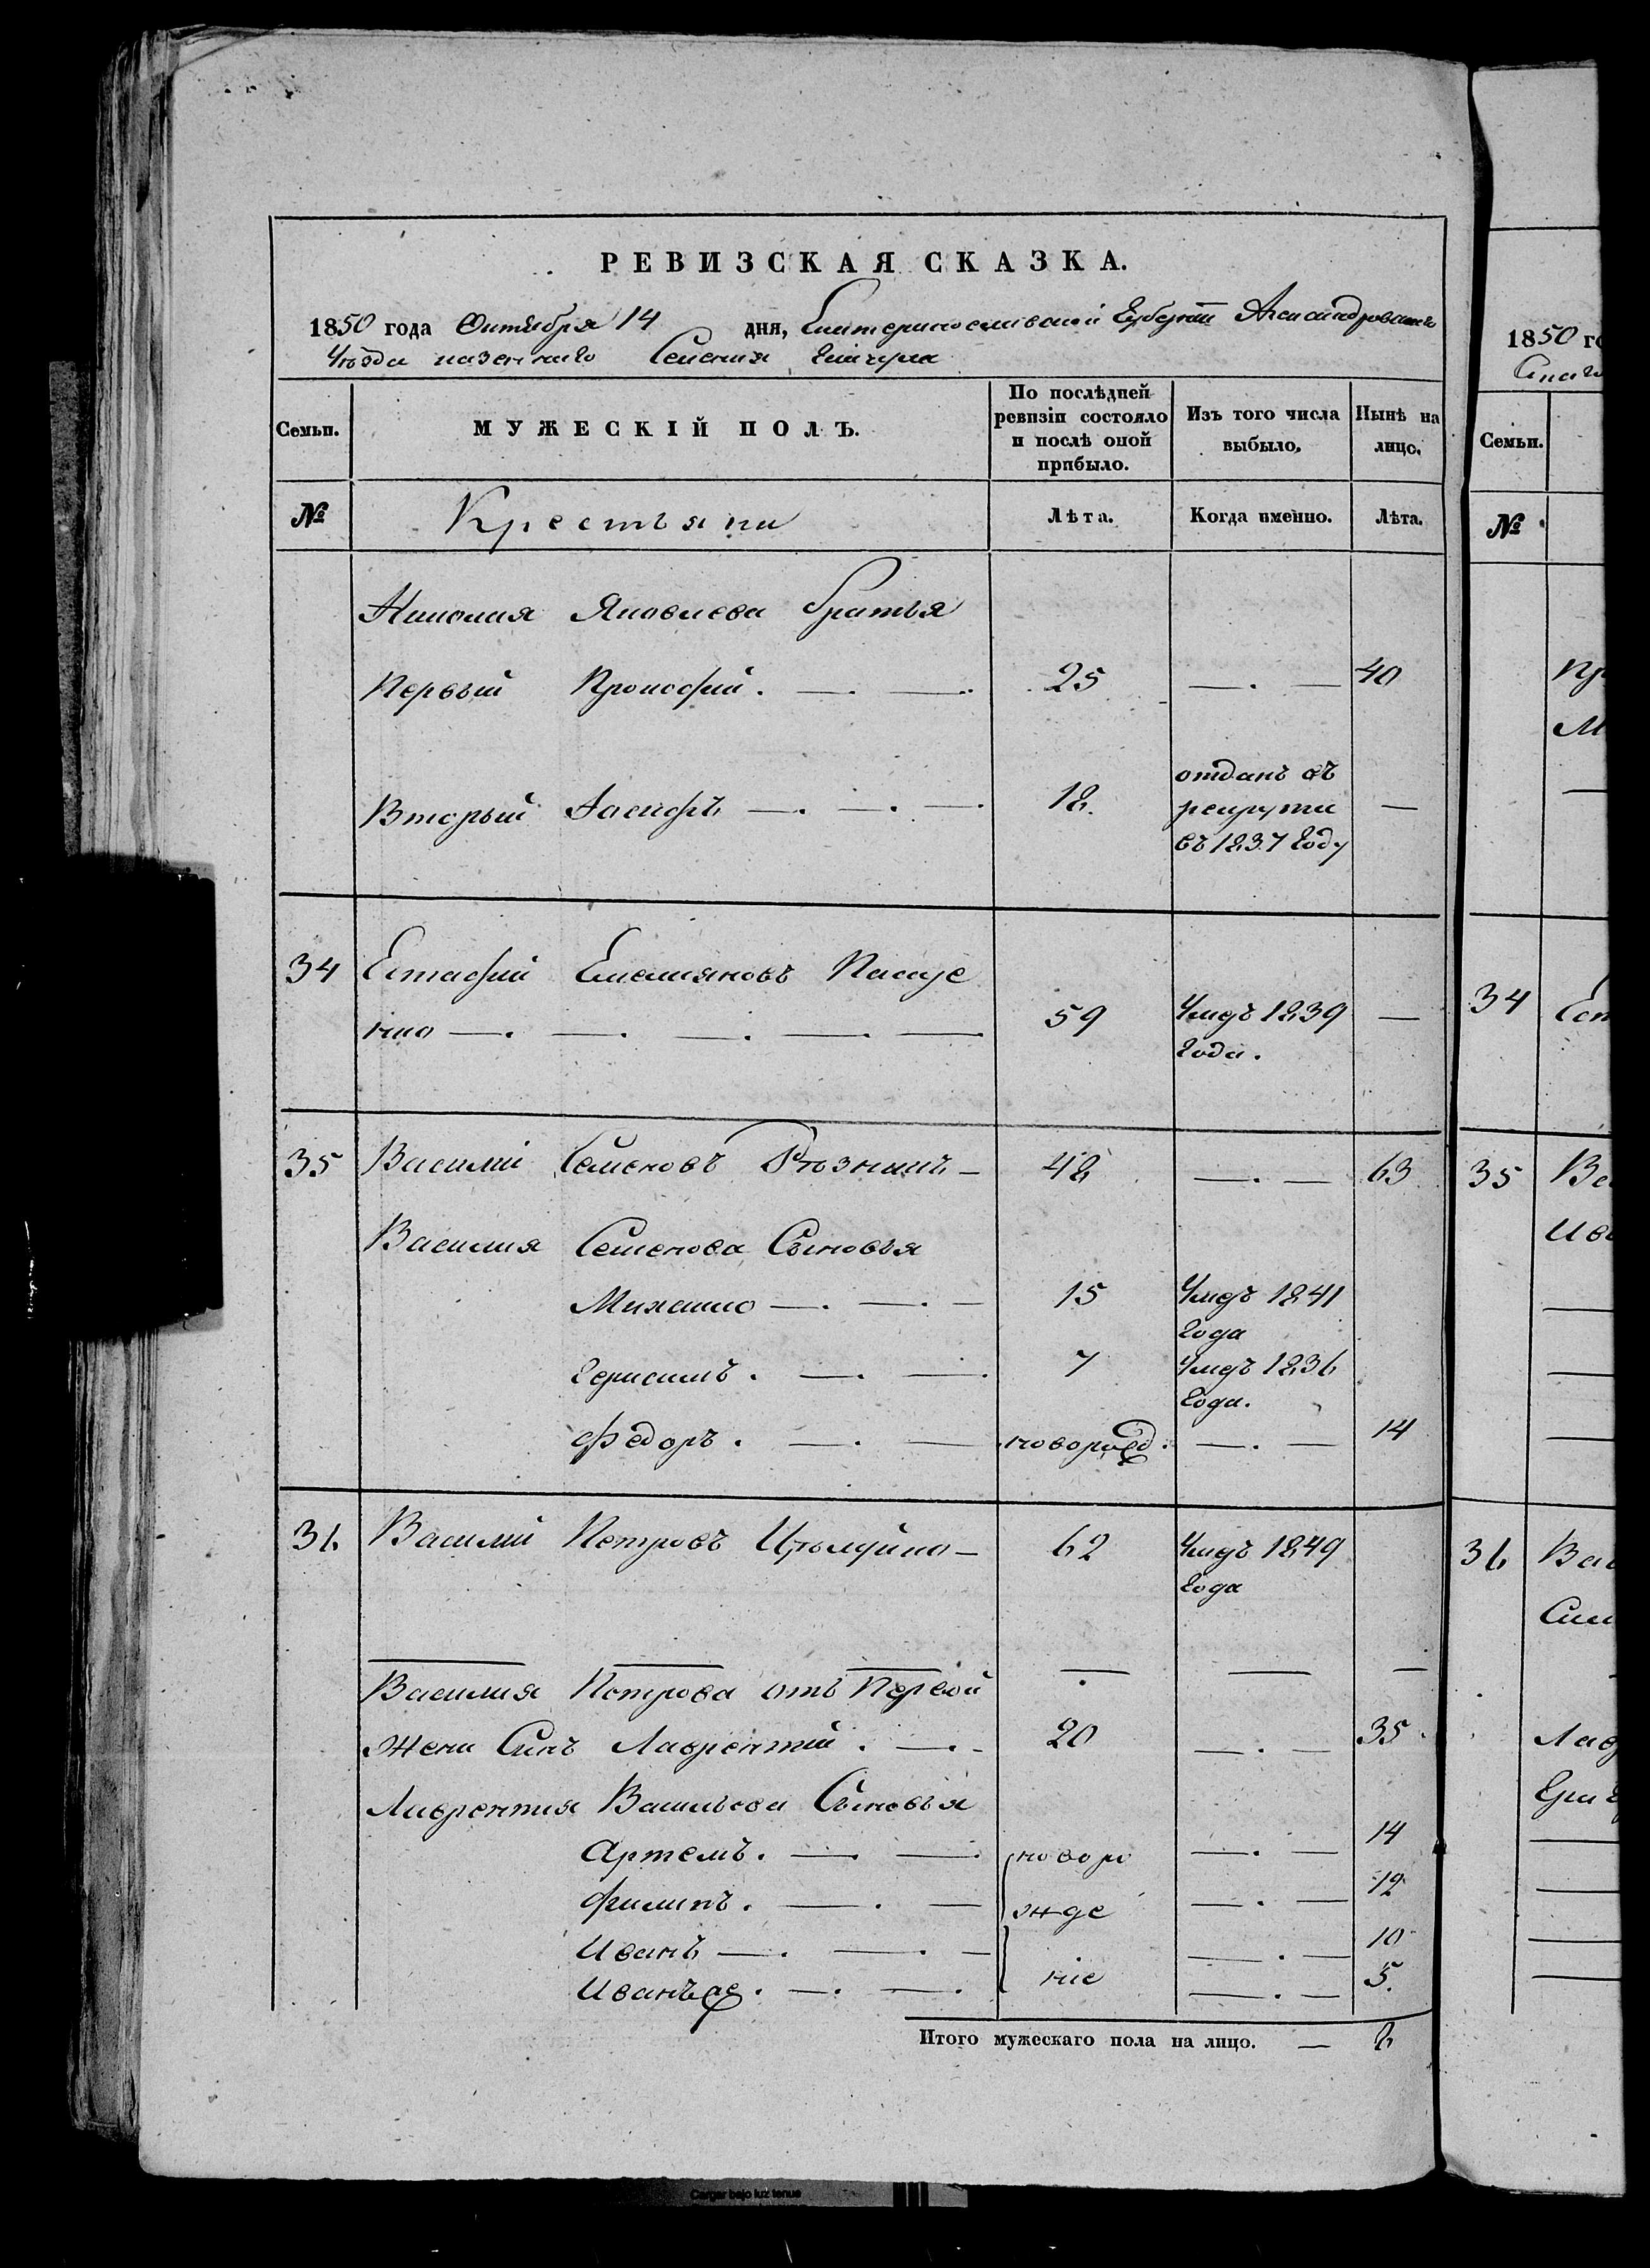 РЕВИЗСКАЯ СКАЗКА.
1850 года Октября 14 дня, Екатеринославской Губерніи Александровскаго
Уѣзда казеннаго Селенія Гайчула
Семьи.
МУЖЕСКІЙ ПОЛЪ.
По послѣдней ревизіи состояло и послѣ оной прибыло.
Изъ того числа выбыло.
Нынѣ на лицо.
№ Крестьяни Лѣта. Когда именно. Лѣта.
Николая Яковлева братья
Первый Прокофий. 25 — 40
отданъ въ
Вторый Іосифъ 18. рекруты —
въ 1837 году
34 Естафий Емелияновъ Пащуе
нко — 59 Умеръ 1839 —
года.
35 Василий Семеновъ — 48 — 63
Василия Семенова Сыновья
Михаило — 15 Умеръ 1841
года
Герасимъ. — 7 Умеръ 1836
года.
Федоръ. — новорожд. — 14
36 Василий Петровъ — 62 Умеръ 1849
года
Василия Петрова отъ Первой
Жени Синъ Лаврентий. — 20 — 35
Лаврентия Васильева Сыновья
Артемъ. — новоро — 14
Филипъ. — жде — 12
Иванъ — — 10
Иванъ же. — ніе — 5.
Итого мужескаго пола на лицо. — 8
1850 го
Семьи.
№
Пр
М
34 Ест
35 Ва
Ива
36 Вас
Лав
Григ
Cargar bajo luz tenue